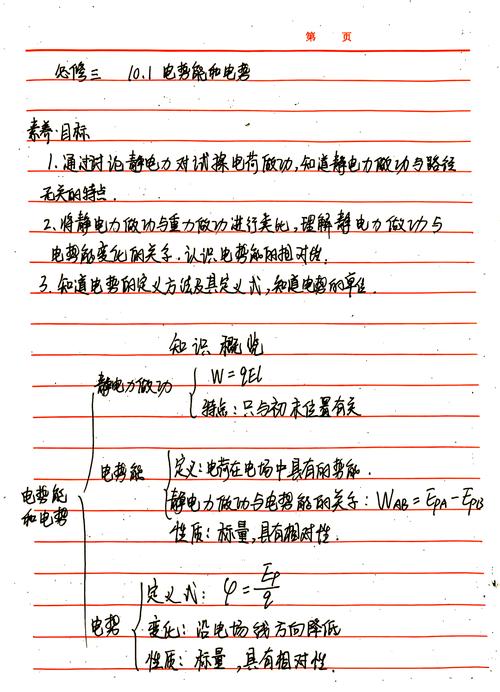 第 页
必修三 10.1 电势能和电势
素养目标
1. 通过讨论静电力对试探电荷做功,知道静电力做功与路径
无关的特点.
2. 将静电力做功与重力做功进行类比,理解静电力做功与
电势能变化的关系.认识电势能的相对性.
3. 知道电势的定义方法及其定义式,知道电势的单位.
知识概览
静电力做功
W=qEl
特点:只与初末位置有关
电势能
定义:电荷在电场中具有的势能.
静电力做功与电势能的关系:W_AB=E_pA-E_pB
性质:标量,具有相对性.
电势能
和电势
电势
定义式:φ=E_p/q
变化:沿电场线方向降低
性质:标量,具有相对性.